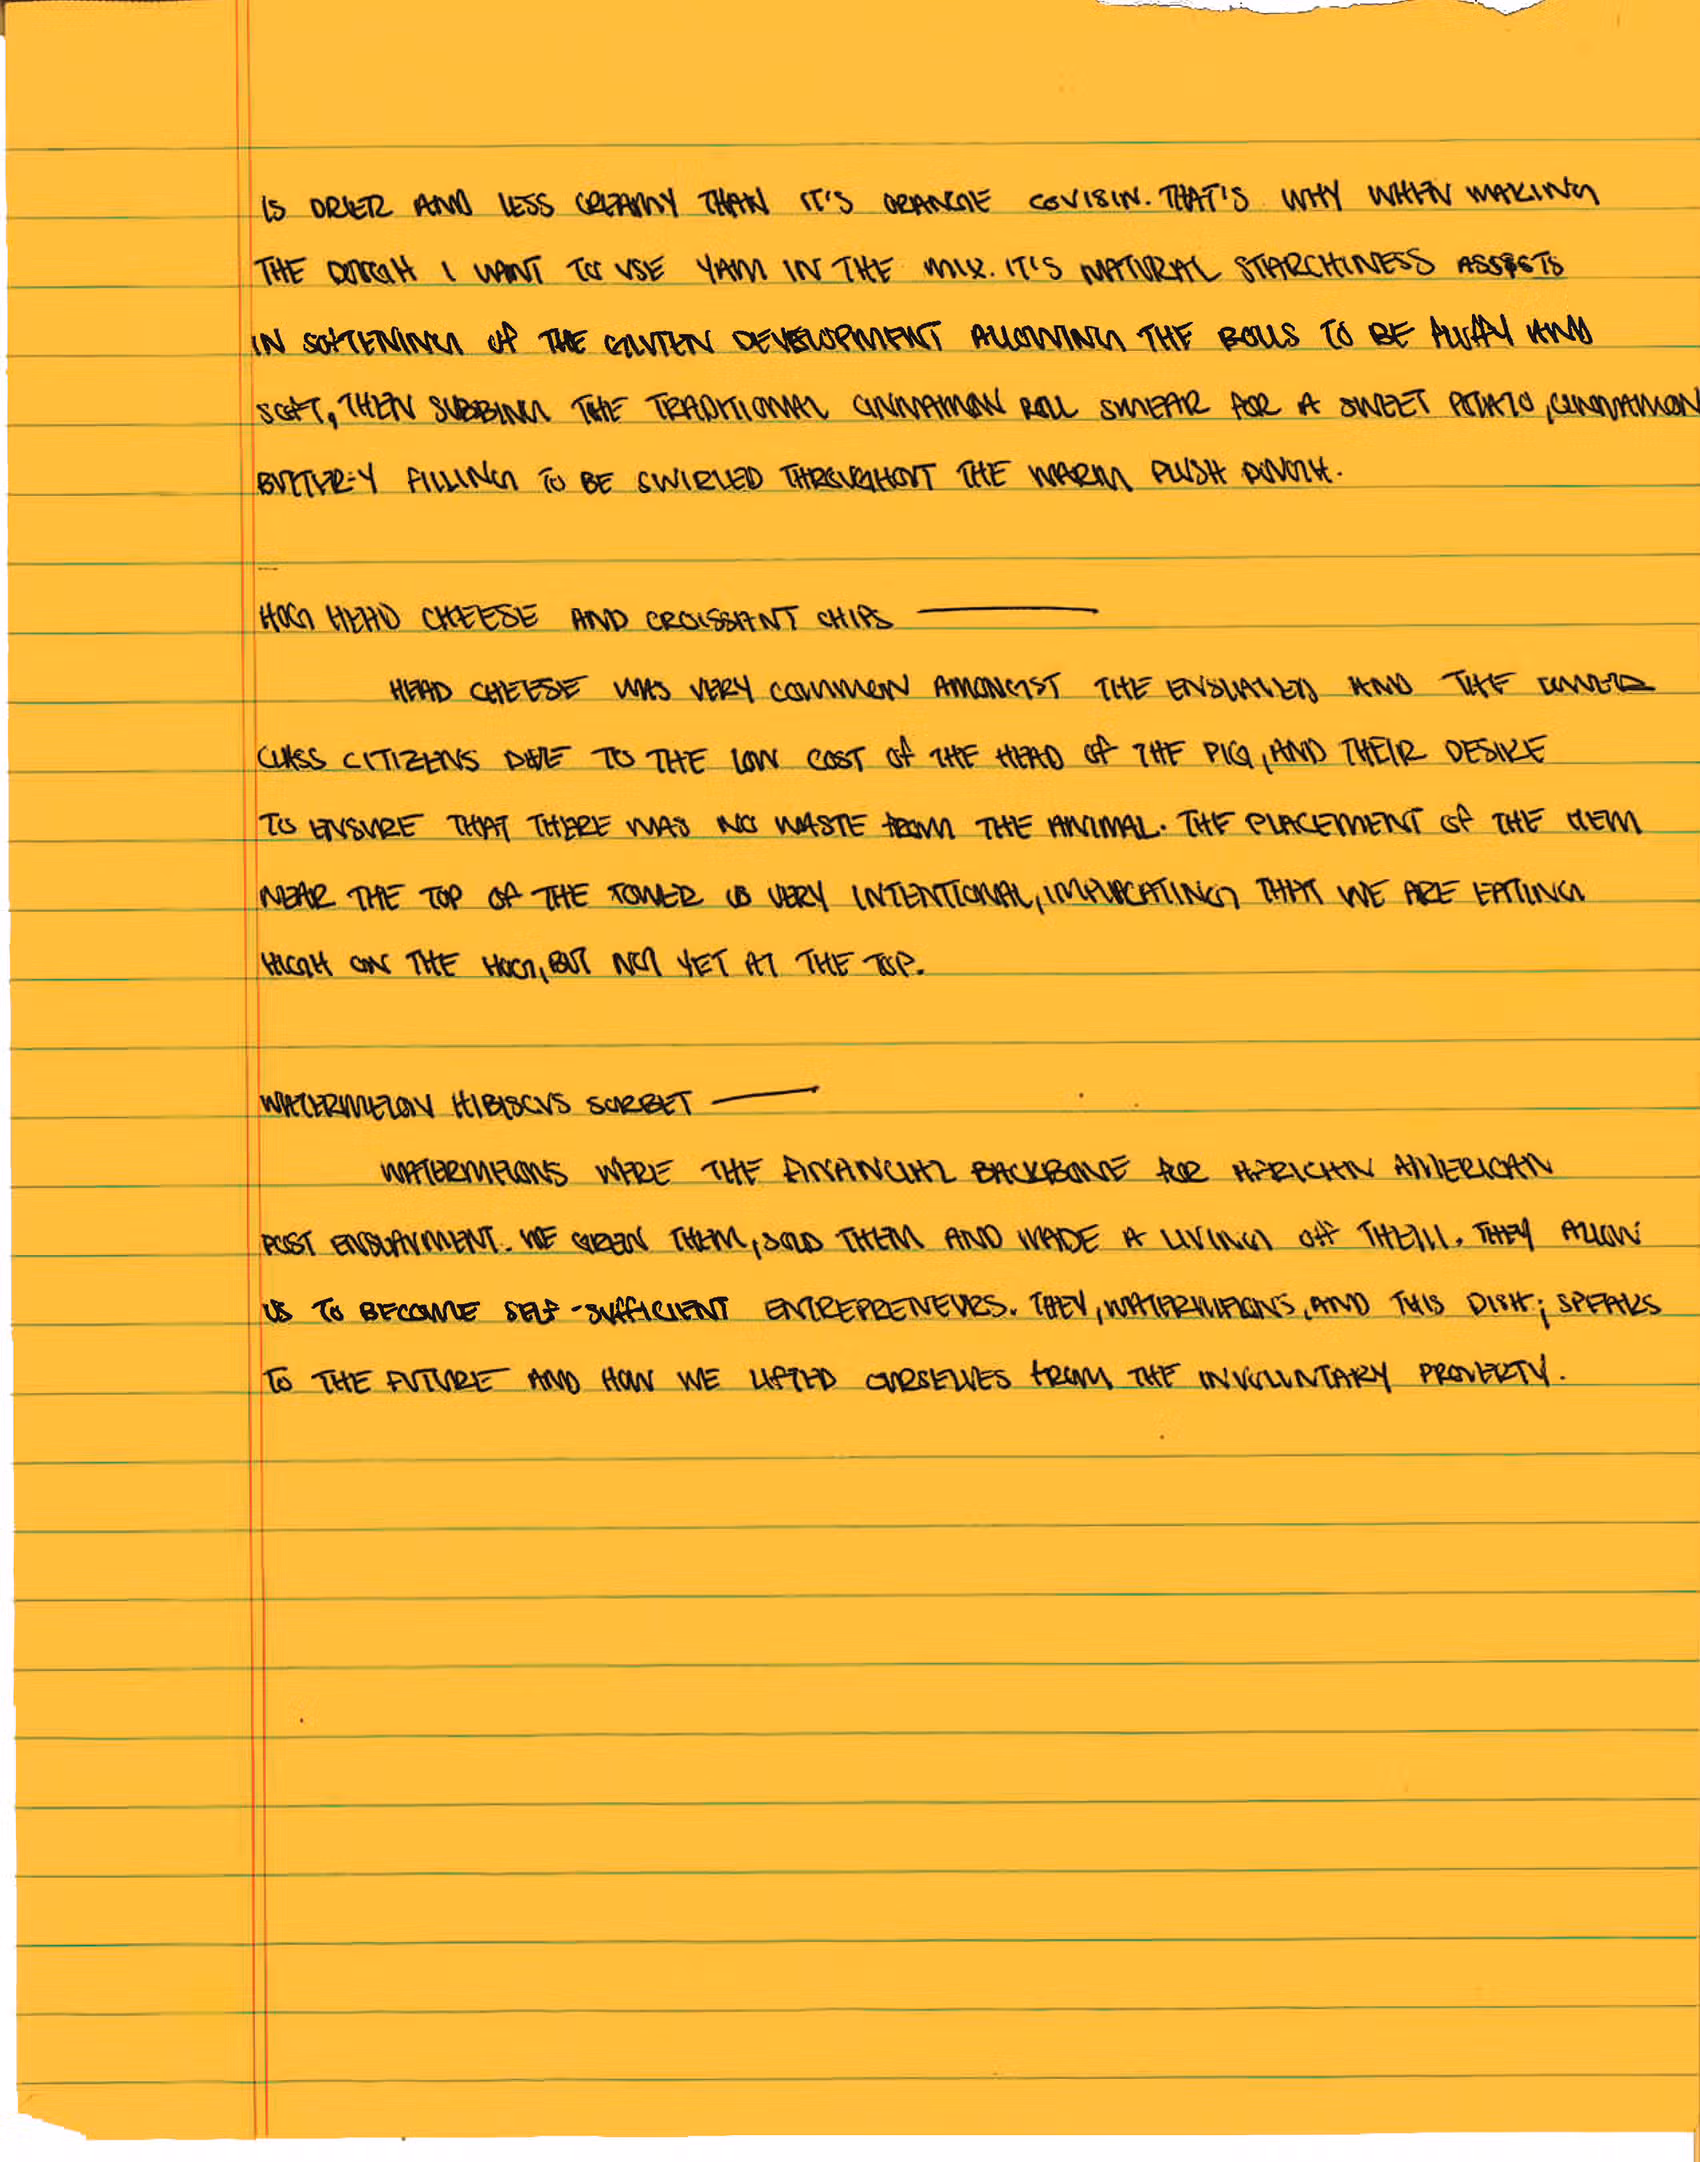 IS DRIER AND LESS CREAMY THAN IT'S ORANGE COUISIN. THAT'S WHY WHEN MAKING
THE DOUGH I WANT TO USE YAM IN THE MIX. IT'S NATURAL STARCHINESS ASSISTS
IN SOFTENING OF THE GLUTEN DEVELOPMENT ALLOWING THE ROLLS TO BE FLUFFY AND
SOFT, THEN SUBBING THE TRADITIONAL CINNAMON ROLL SMEAR FOR A SWEET POTATO, CINNAMON
BUTTER-Y FILLING TO BE SWIRLED THROUGHOUT THE WARM PLUSH DOUGH.
HOG HEAD CHEESE AND CROISSANT CHIPS ———
HEAD CHEESE WAS VERY COMMON AMONGST THE ENSLAVED AND THE LOWER
CLASS CITIZENS DUE TO THE LOW COST OF THE HEAD OF THE PIG, AND THEIR DESIRE
TO ENSURE THAT THERE WAS NO WASTE FROM THE ANIMAL. THE PLACEMENT OF THE ITEM
NEAR THE TOP OF THE TOWER IS VERY INTENTIONAL, IMPLICATING THAT WE ARE EATING
HIGH ON THE HOG, BUT NOT YET AT THE TOP.
WATERMELON HIBISCUS SORBET ———
WATERMELONS WERE THE FINANCIAL BACKBONE FOR AFRICAN AMERICAN
POST ENSLAVMENT. WE GREW THEM, SOLD THEM AND MADE A LIVING OFF THEM. THEY ALLOW
US TO BECOME SELF-SUFFICIENT ENTREPRENEURS. THEY, WATERMELONS, AND THIS DISH; SPEAKS
TO THE FUTURE AND HOW WE LIFTED OURSELVES FROM THE INVOLUNTARY PROVERTY.